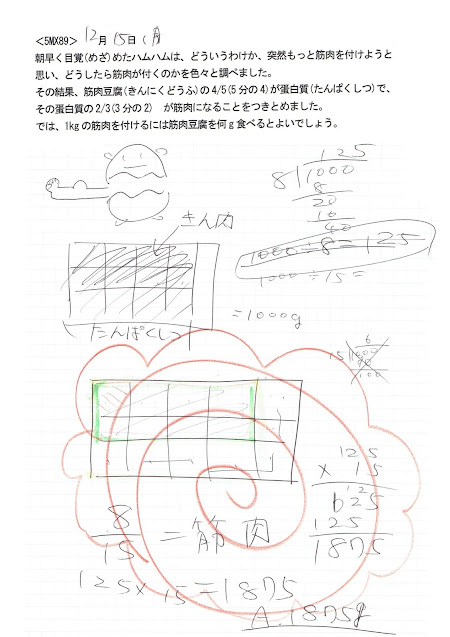 <5MX89> 12月 15日 (月
朝早く目覚(めざ)めたハムハムは、どういうわけか、突然もっと筋肉を付けようと
思い、どうしたら筋肉が付くのかを色々と調べました。
その結果、筋肉豆腐(きんにくどうふ)の4/5(5分の4)が蛋白質(たんぱくしつ)で、
その蛋白質の2/3(3分の2) が筋肉になることをつきとめました。
では、1kgの筋肉を付けるには筋肉豆腐を何g食べるとよいでしょう。
125
8)1000
8
20
16
40
1000÷8=125
1000÷15=
きん肉
=1000g
たんぱくしつ
6
15)1000
90
100
125
×15
625
125
1875
8/15 =筋肉
125×15=1875
A.1875g